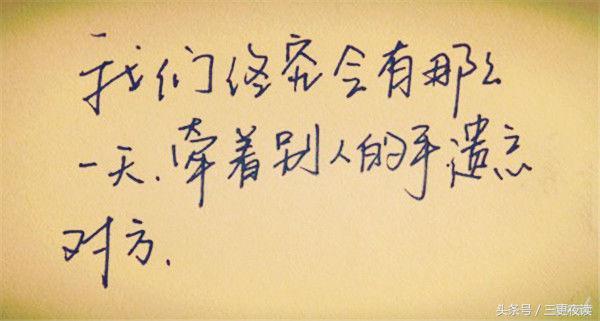 我们终究会有那么
一天.牵着别人的手遗忘
对方.
头条号 / 三更夜读